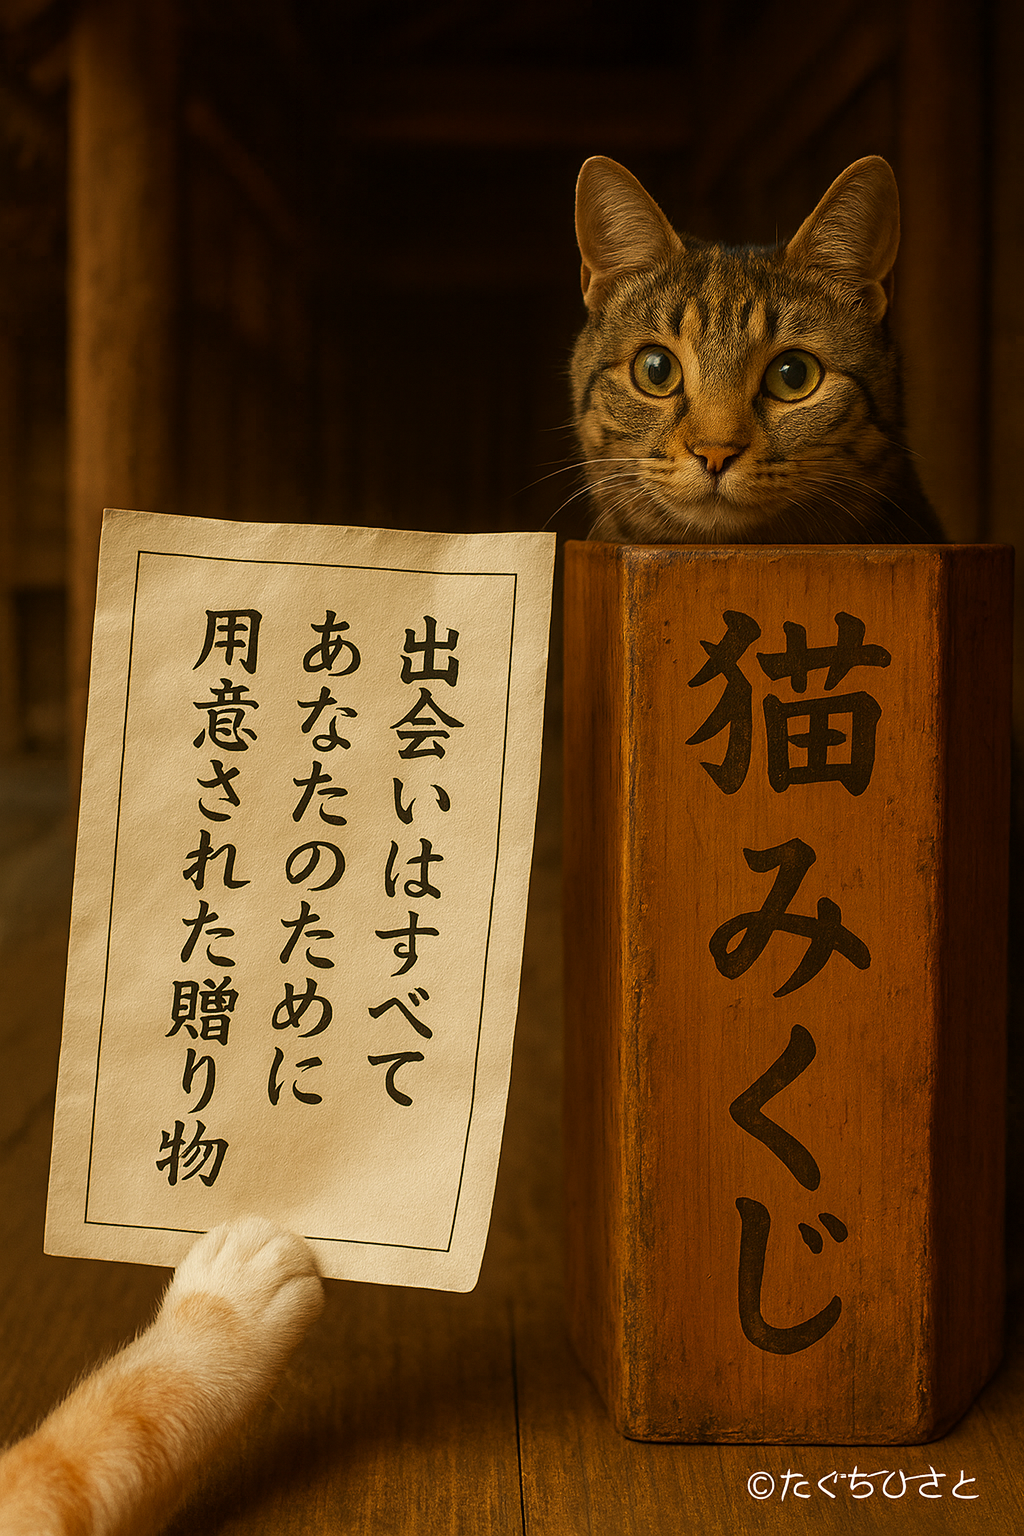 出会いはすべて
あなたのために
用意された贈り物
猫みくじ
©たぐちひさと